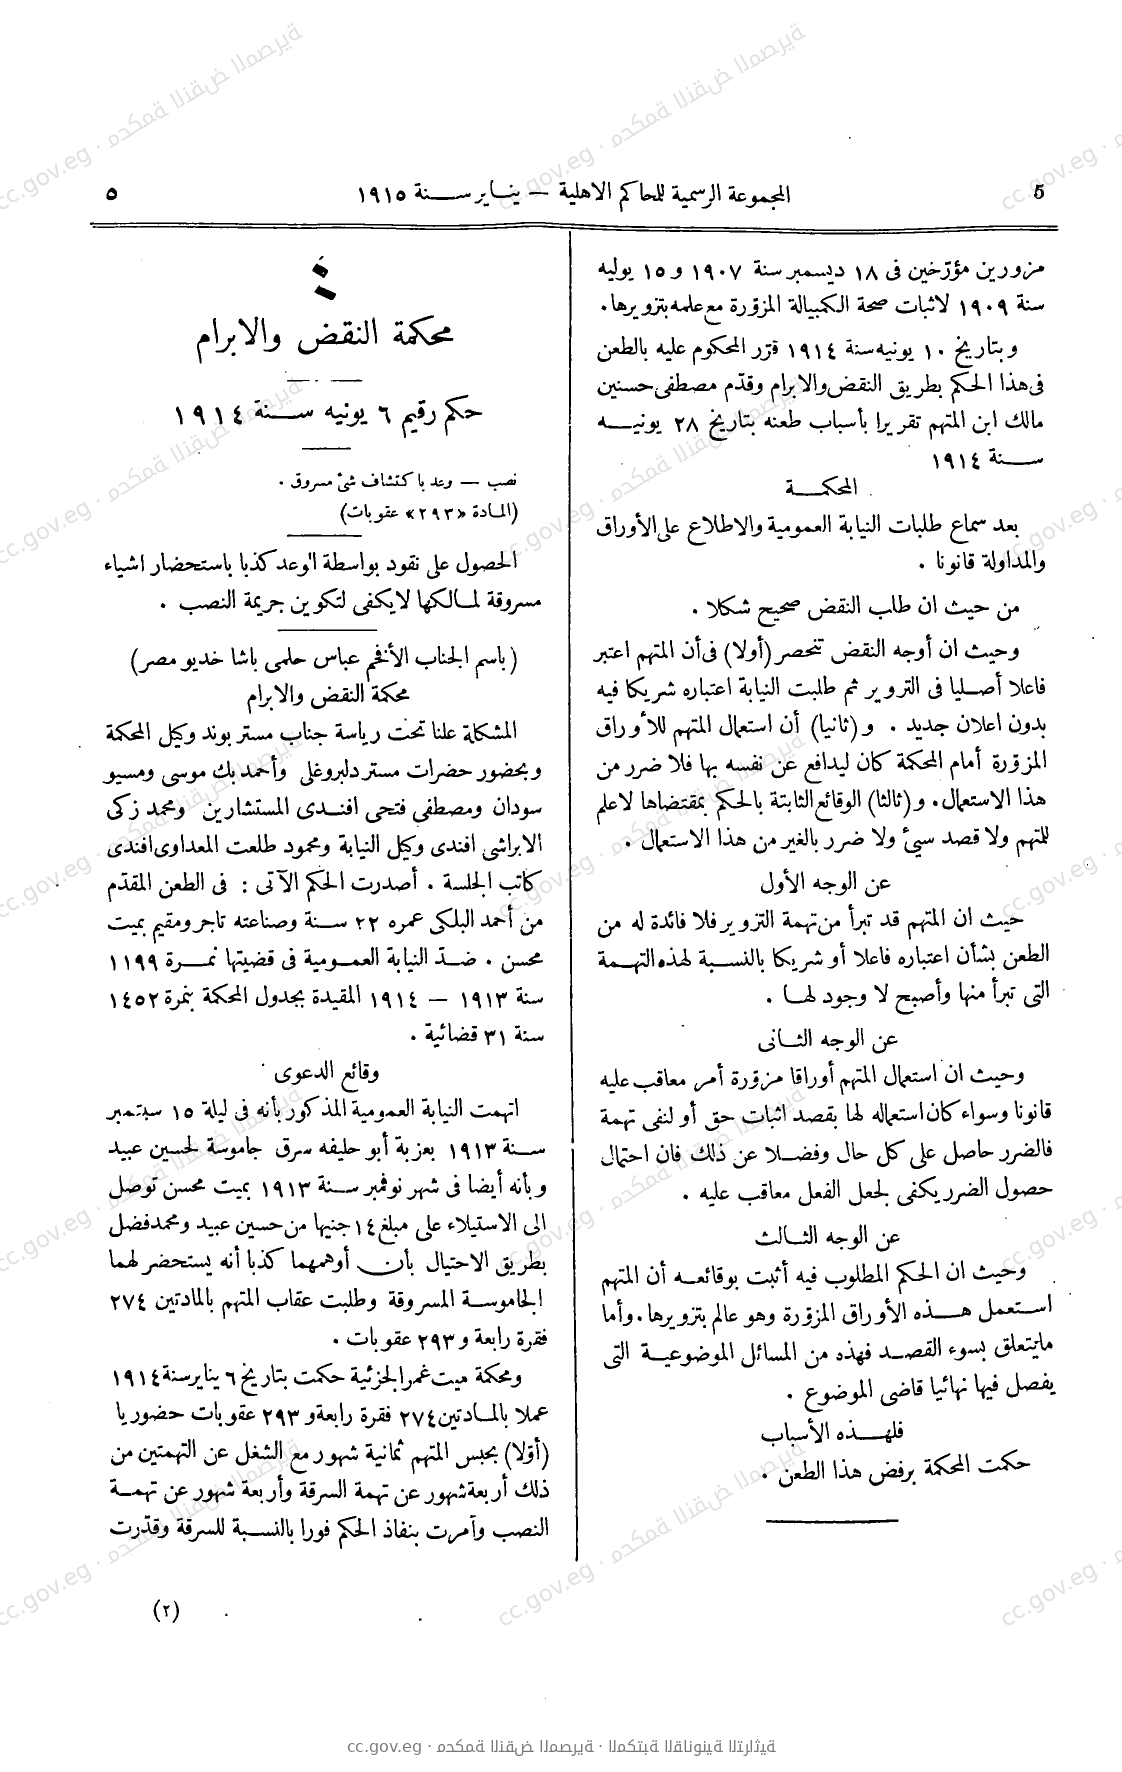 5
المجموعة الرسمية للمحاكم الاهلية — ينـاير سـنة ١٩١٥
٥
مزورين مؤرّخين فى ١٨ ديسمبر سنة ١٩٠٧ و ١٥ يوليه
سنة ١٩٠٩ لاثبات صحة الكمبيالة المزوّرة مع علمه بتزويرها.
وبتاريخ ١٠ يونيه سنة ١٩١٤ قرّر المحكوم عليه بالطعن
فى هذا الحكم بطريق النقض والابرام وقدّم مصطفى حسنين
مالك ابن المتهم تقريرا بأسباب طعنه بتاريخ ٢٨ يونيـه
سـنة ١٩١٤
المحكمـة
بعد سماع طلبات النيابة العمومية والاطلاع على الأوراق
والمداولة قانونا .
من حيث ان طلب النقض صحيح شكلا .
وحيث ان أوجه النقض تنحصر (أولا) فى أن المتهم اعتبر
فاعلا أصـليا فى التزوير ثم طلبت النيابة اعتباره شريكا فيه
بدون اعلان جديد . و (ثانيا) أن استعمال المتهم للأوراق
المزوّرة أمام المحكمة كان ليدافع عن نفسه بها فلا ضرر من
هذا الاستعمال. و (ثالثا) الوقائع الثابتة بالحكم بمقتضاها لا علم
للمتهم ولا قصد سيئ ولا ضرر بالغير من هذا الاستعمال .
عن الوجه الأول
حيث ان المتهم قد تبرأ من تهمة التزوير فلا فائدة له من
الطعن بشأن اعتباره فاعلا أو شريكا بالنسـبة لهذه التهـمة
التى تبرأ منها وأصبح لا وجود لهـا .
عن الوجه الثـانى
وحيث ان استعمال المتهم أوراقا مزوّرة أمر معاقب عليه
قانونا وسواء كان استعماله لها بقصد اثبات حق أو لنفى تهمة
فالضرر حاصل على كل حال وفضـلا عن ذلك فان احتمال
حصول الضرر يكفى لجعل الفعل معاقب عليه .
عن الوجه الثـالث
وحيث ان الحكم المطلوب فيه أثبت بوقائعـه أن المتهم
استعمل هـذه الأوراق المزوّرة وهو عالم بتزويرها. وأما
مايتعلق بسوء القصـد فهذه من المسائل الموضوعيـة التى
يفصل فيها نهائيا قاضى الموضوع .
فلهـذه الأسباب
حكمت المحكمة برفض هذا الطعن .
محكمة النقض والابرام
حكم رقيم ٦ يونيه سـنة ١٩١٤
نصب — وعد باكتشاف شئ مسروق .
(المـادة «٢٩٣» عقوبات)
الحصول على نقود بواسطة الوعد كذبا باستحضار اشياء
مسروقة لمـالكها لا يكفى لتكوين جريمة النصب .
(باسم الجناب الأفخم عباس حلمى باشا خديو مصر)
محكمة النقض والابرام
المشكلة علنا تحت رياسة جناب مستر بوند وكيل المحكمة
وبحضور حضرات مستر دلبروغلى وأحمد بك موسى ومسيو
سودان ومصطفى فتحى افنـدى المستشارين ومحمد زكى
الابراشى افندى وكيل النيابة ومحمود طلعت المعداوى افندى
كاتب الجلسة . أصدرت الحكم الآتى : فى الطعن المقدّم
من أحمد البلكى عمره ٢٢ سـنة وصناعته تاجر ومقيم بميت
محسن . ضـدّ النيابة العمـومية فى قضيتها نمـرة ١١٩٩
سنة ١٩١٣ — ١٩١٤ المقيدة بجدول المحكمة بنمرة ١٤٥٢
سنة ٣١ قضائية .
وقائع الدعوى
اتهمت النيابة العمومية المذكور بأنه فى ليلة ١٥ سبتمبر
سـنة ١٩١٣ بعزبة أبو حليفه سرق جاموسة لحسين عبيد
وبأنه أيضا فى شهر نوفمبر سـنة ١٩١٣ بميت محسن توصل
الى الاستيلاء على مبلغ ١٤ جنيها من حسين عبيد ومحمد فضل
بطريق الاحتيال بأن أوهمهما كذبا أنه يستحضر لهما
الجاموسـة المسروقة وطلبت عقاب المتهم بالمادتين ٢٧٤
فقرة رابعة و ٢٩٣ عقوبات .
ومحكمة ميت غمر الجزئية حكمت بتاريخ ٦ يناير سنة ١٩١٤
عملا بالمـادتين ٢٧٤ فقرة رابعة و ٢٩٣ عقوبات حضوريا
(أوّلا) بحبس المتهم ثمانية شهور مع الشغل عن التهمتين من
ذلك أربعة شهور عن تهمة السرقة وأربعة شهور عن تهمـة
النصب وأمرت بنفاذ الحكم فورا بالنسـبة للسرقة وقدّرت
(٢)
cc.gov.eg · محكمة النقض المصرية · المكتبة القانونية التراثية